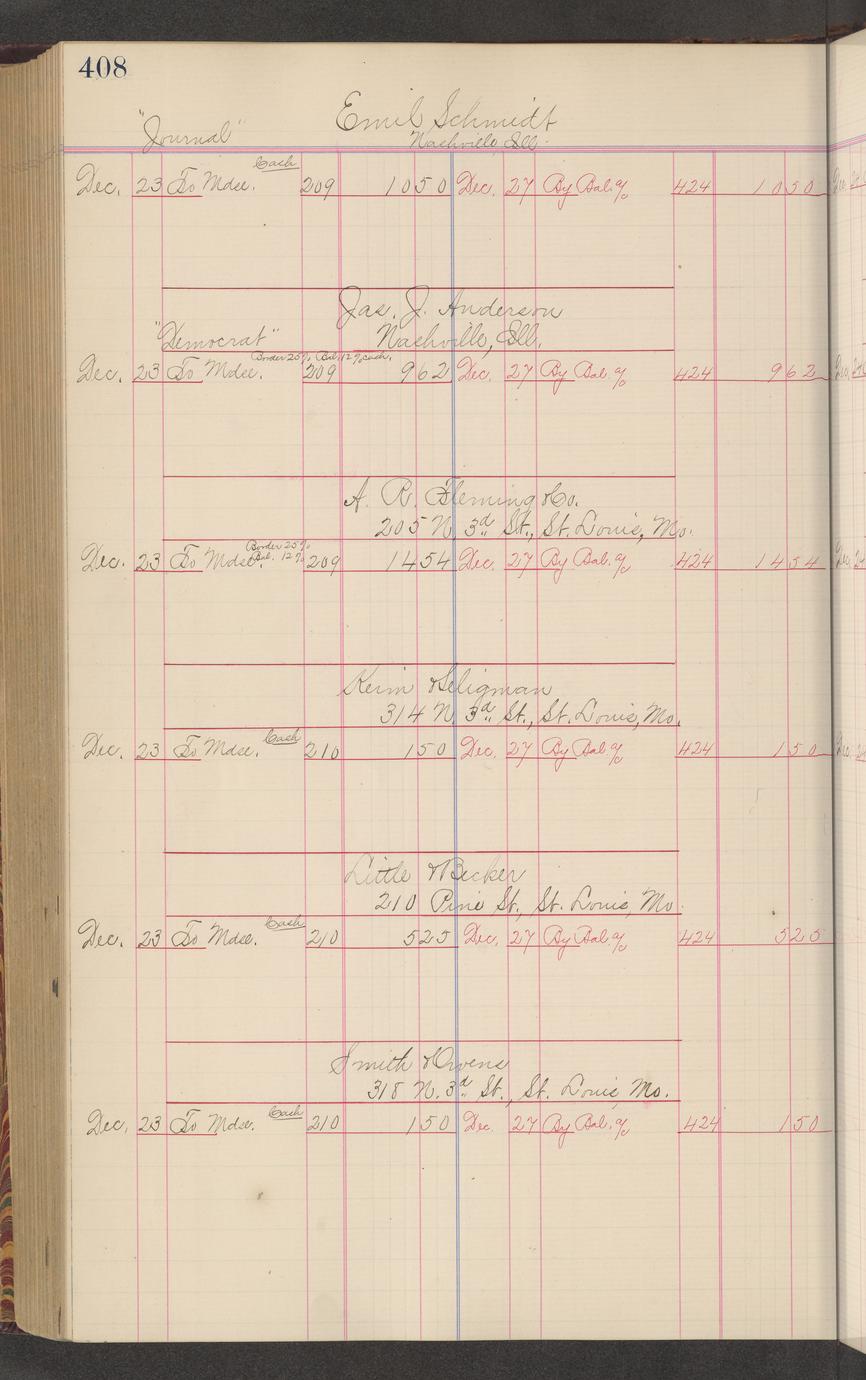 408
"Journal" Emil Schmidt
Nashville Ill.
Cash
Dec. 23 To Mdse. 209 10 50 Dec. 27 By Bal. a/c 424 10 50
Jas. J. Anderson
"Democrat" Nashville, Ill.
Border 25% Bal. 12% cash.
Dec. 23 To Mdse. 209 9 62 Dec. 27 By Bal. a/c 424 9 62
A. R. Fleming & Co.
205 N. 3d St., St. Louis, Mo.
Border 25%
Bal. 12%
Dec. 23 To Mdse. 209 14 54 Dec. 27 By Bal. a/c 424 14 54
Keim & Seligman
314 N. 3d St., St. Louis, Mo.
Cash
Dec. 23 To Mdse. 210 1 50 Dec. 27 By Bal a/c 424 1 50
Little & Becker
210 Pine St., St. Louis, Mo.
Cash
Dec. 23 To Mdse. 210 5 25 Dec. 27 By Bal a/c 424 5 25
Smith & Owens
318 N. 3d St., St. Louis, Mo.
Cash
Dec. 23 To Mdse. 210 1 50 Dec. 27 By Bal. a/c 424 1 50